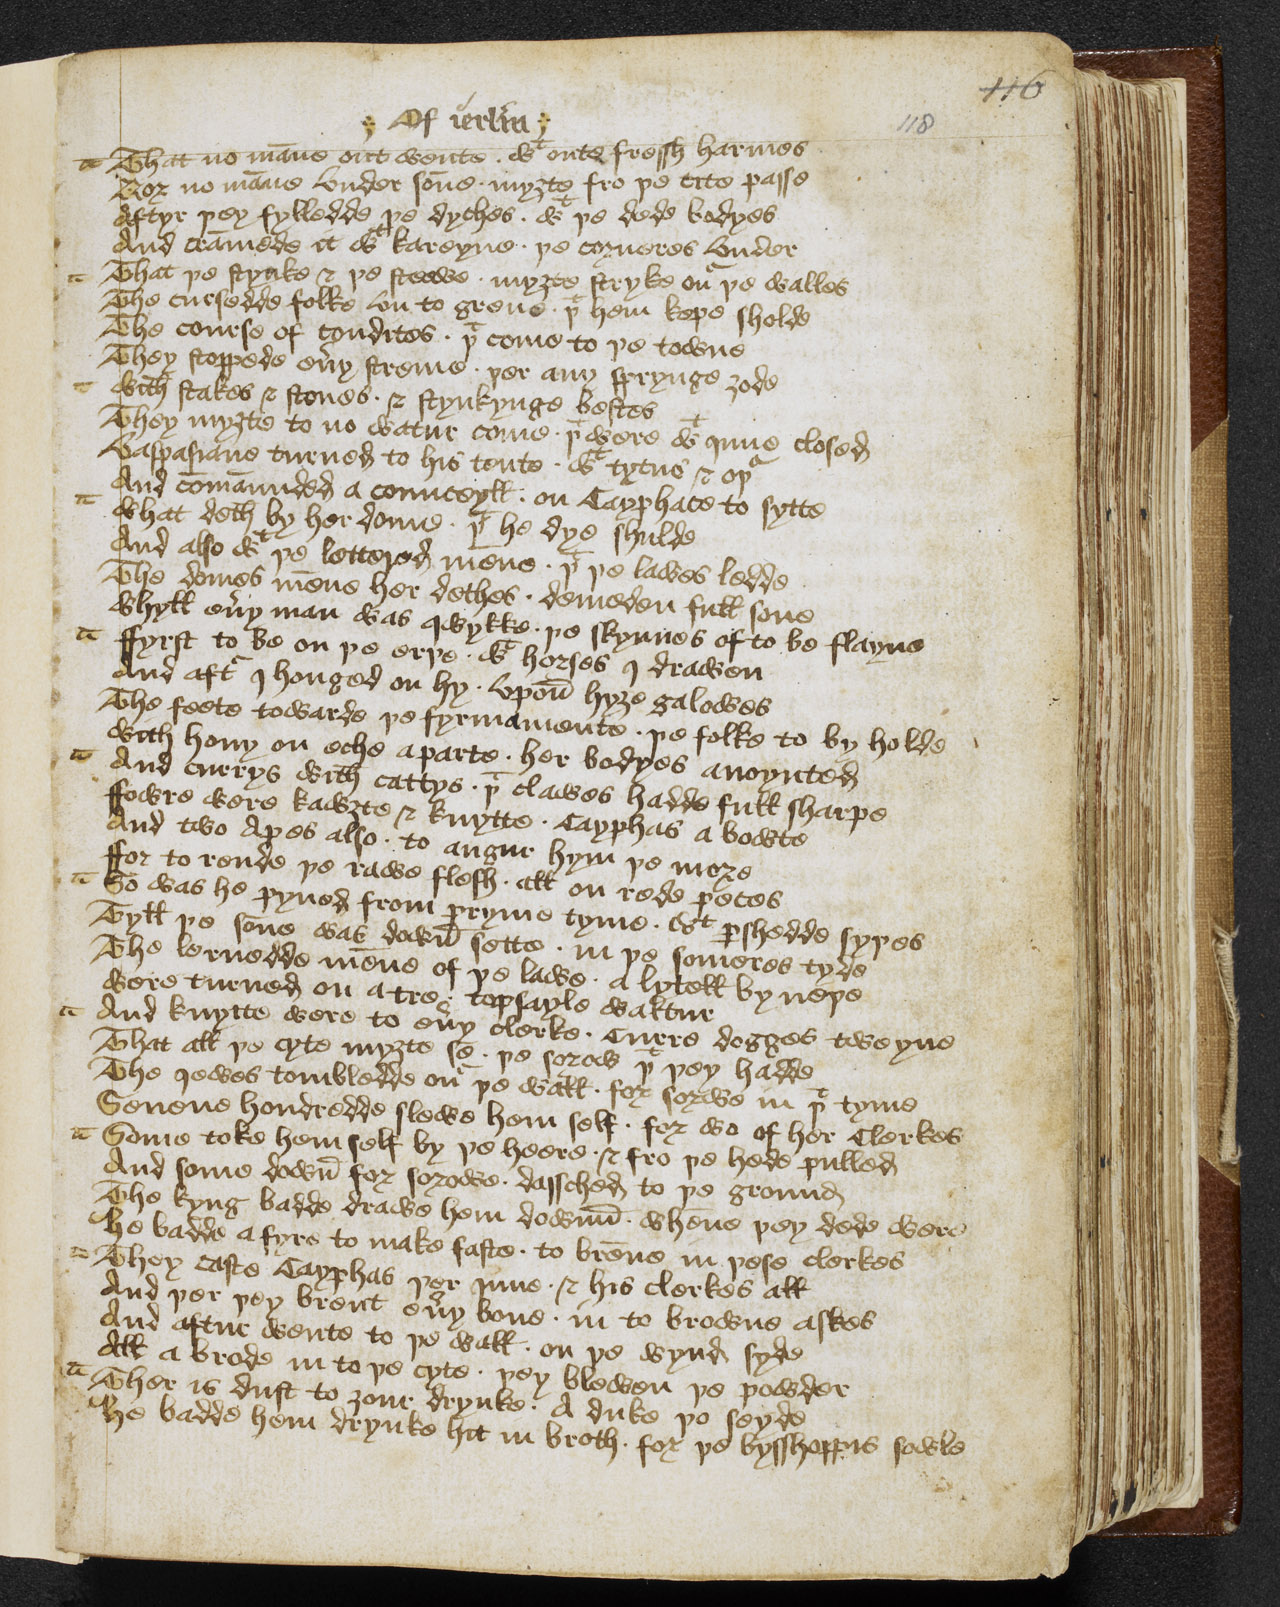 116
118
Of ierlm̄
That no māne out wente . wt oute fressh harmes
Nor no māne vnder sōne . myȝte fro þe cite passe
Aftyr þey fylledde þe dyches . wt þe dede bodyes
And crāmede it wt kareyne . þe corneres vnder
That þe stynke & þe steewe . myȝte stryke ouͬ þe walles
The cursedde folke vn to greue . þt hem kepe sholde
The course of conditos . þt come to þe towne
They stoppede eu̾y streme . þer any sprynge ȝode
with stakes & stones . & stynkynge bestes
They myȝte to no watur come . þt were wt inne closed
Vaspasiane turned to his tente . wt tytus & oþͬ
And cōmaunded a counceyll . on Cayphace to sytte
what deth by her dome . þt he dye shulde
And also wt þe lettered mēne . þt þe lawes ledde
The domes mēne her dethes . demeden full sone
whyll eu̾y man was qwykke . þe skynnes of to be flayne
ffyrst to be on þe erþe . wt horses i drawen
And aftͬ i honged on hy . vpon̄ hyȝe galowes
The feete towarde þe fyrmamente . þe folke to by holde
with hony on eche a parte . her bodyes anoynted
And currys with cattys . þt clawes hadde full sharpe
ffowre were kawȝte & knytte . Cayphas a bowte
And two Apes also . to angur hym þe more
ffor to rende þe rawe flesh . all on rede peces
So was he pyned from pryme tyme . wt ꝑshedde sydes
Tyll þe sōne was down̄ sette . in þe someres tyde
The lernedde mēne of þe lawe . a lytell by neþe
were turned on a tree . topsayle waltur
And knytte were to eu̾y clerke . Curre dogges tweyne
That all þe cyte myȝte se . þe sorow þt þey hadde
The iewes tombledde ouͬ þe wall . for sorwe in þt tyme
Seuene hondredde slewe hem self . for wo of her Clerkes
Some toke hem self by þe heere . & fro þe hede pulled
And some down̄ for sorowe . dassched to þe ground
The kyng badde drawe hem down̄ . whēne þey dede were
he badde a fyre to make faste . to brēne in þese clerkes
They caste Cayphas þer inne . & his clerkes all
And þer þey brent eu̾y bone . in to browne askes
And aftur wente to þe wall . on þe wynd syde
All a brode in to þe cyte . þey blewen þe powder
Ther is dust to ȝour drynke . A duke þo seyde
he badde hem drynke hit in broth . for þe bysshoppus sowle